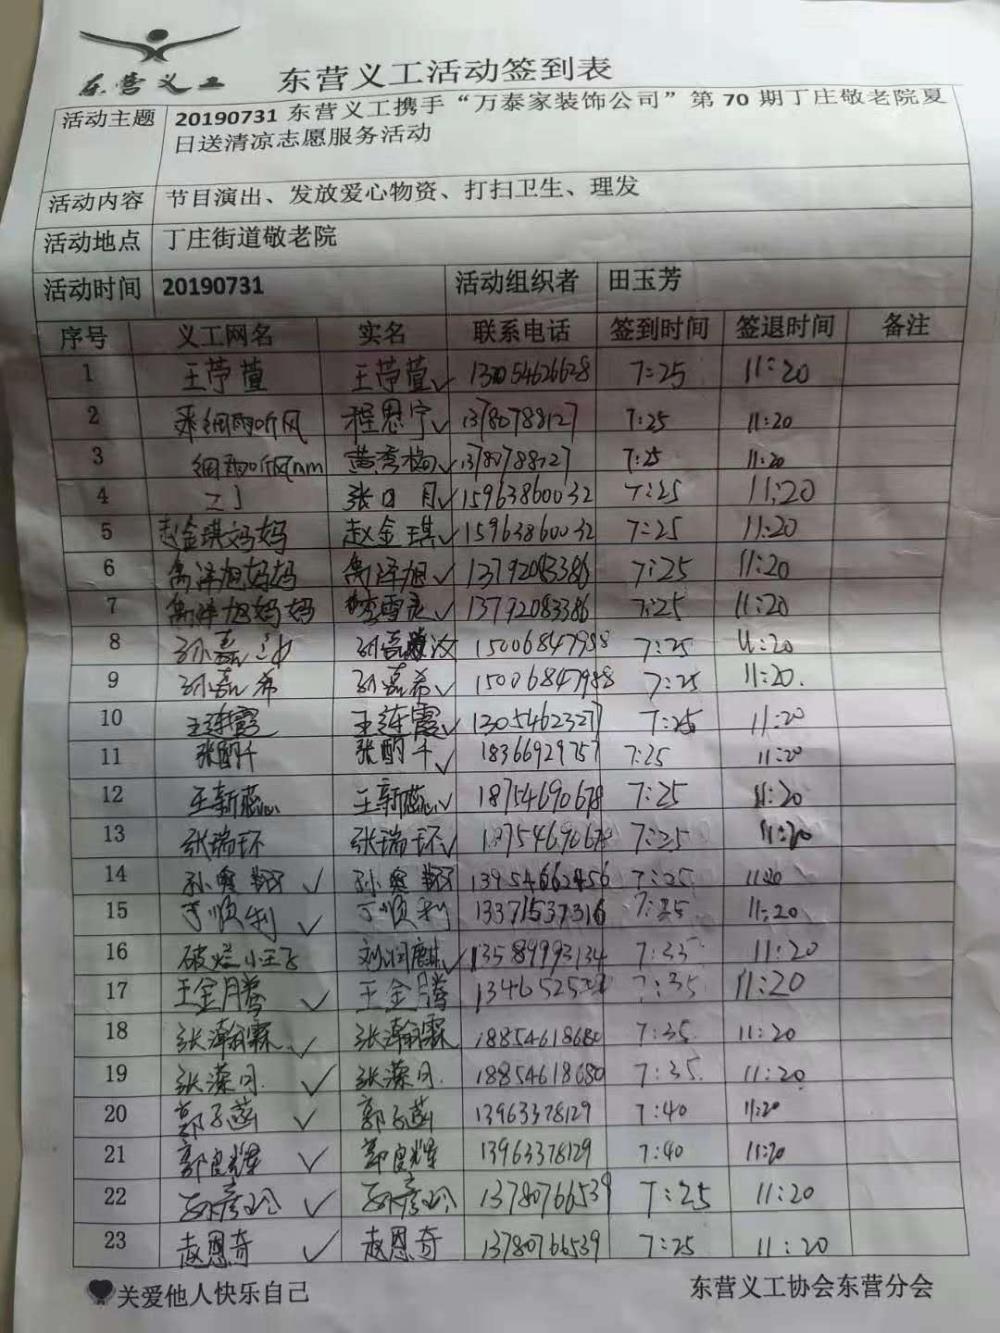 东营义工
东营义工活动签到表
活动主题 20190731 东营义工携手“万泰家装饰公司”第 70 期丁庄敬老院夏
日送清凉志愿服务活动
活动内容 节目演出、发放爱心物资、打扫卫生、理发
活动地点 丁庄街道敬老院
活动时间 20190731 活动组织者 田玉芳
序号 义工网名 实名 联系电话 签到时间 签退时间 备注
1 王苧萱 王苧萱✓ 13054626628 7:25 11:20
2 细雨听风 程思宁✓ 13780788127 7:25 11:20
3 细雨听风nm 黄秀梅✓ 13780788127 7:25 11:20
4 张日月✓ 15963860032 7:25 11:20
5 赵金琪妈妈 赵金琪✓ 15963860032 7:25 11:20
6 禹泽旭妈妈 禹泽旭✓ 13792083386 7:25 11:20
7 禹泽旭妈妈 ✓ 13792083386 7:25 11:20
8 孙嘉 孙嘉 15006847988 7:25 11:20
9 孙嘉希 孙嘉希✓ 15006847988 7:25 11:20.
10 王连霞 王连霞✓ 13054623277 7:25 11:20
11 张酌千 张酌千✓ 18366929757 7:25 11:20
12 王新蕊 王新蕊✓ 18754690678 7:25 11:20
13 张瑞环 张瑞环✓ 18754690678 7:25 11:20
14 孙 ✓ 孙 13954662456 7:25 11:20
15 丁顺利 ✓ 丁顺利 13371537316 7:35 11:20
16 破烂小王飞 刘润麒✓ 13589993134 7:35 11:20
17 王金腾 ✓ 王金腾 7:35 11:20
18 张瀚霖 ✓ 张瀚霖 18854618680 7:35 11:20
19 张滦月. ✓ 张滦月. 18854618680 7:35. 11:20
20 郭子菡 ✓ 郭子菡 13963378129 7:40 11:20
21 郭良辉 ✓ 郭良辉 13963378129 7:40 11:20
22 孙彦玲 ✓ 孙彦玲 13780766539 7:25 11:20
23 赵恩奇 ✓ 赵恩奇 13780766539 7:25 11:20
关爱他人快乐自己 东营义工协会东营分会